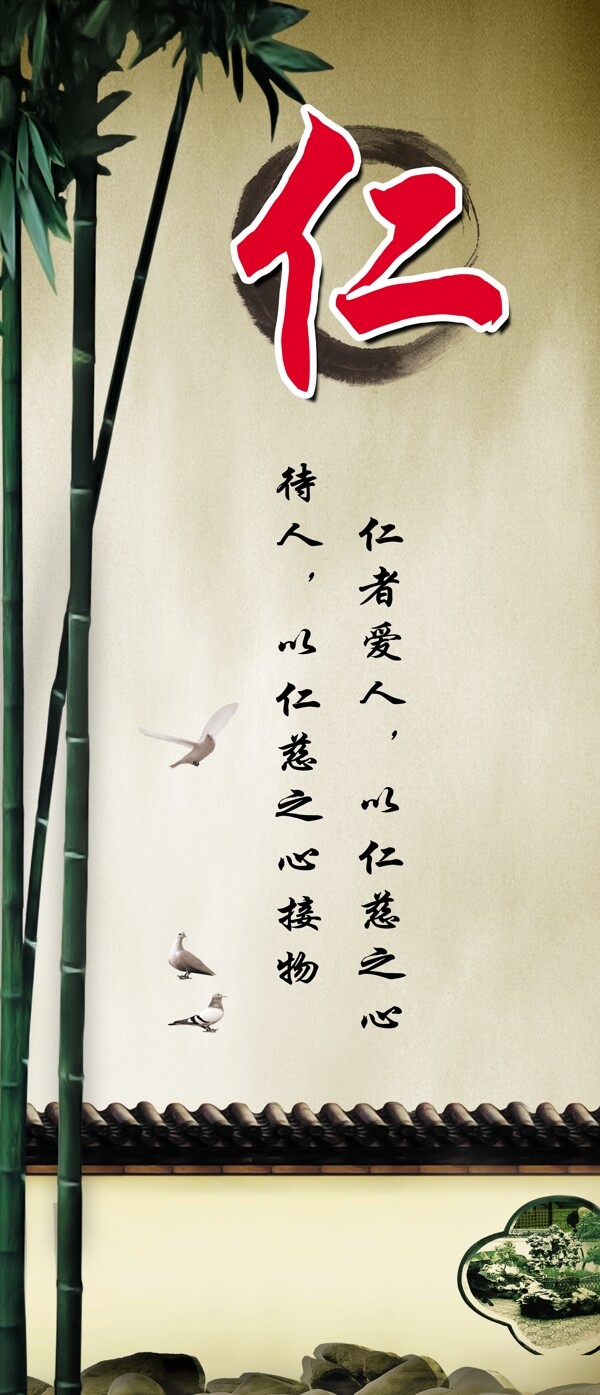 仁
仁者爱人，以仁慈之心
待人，以仁慈之心接物